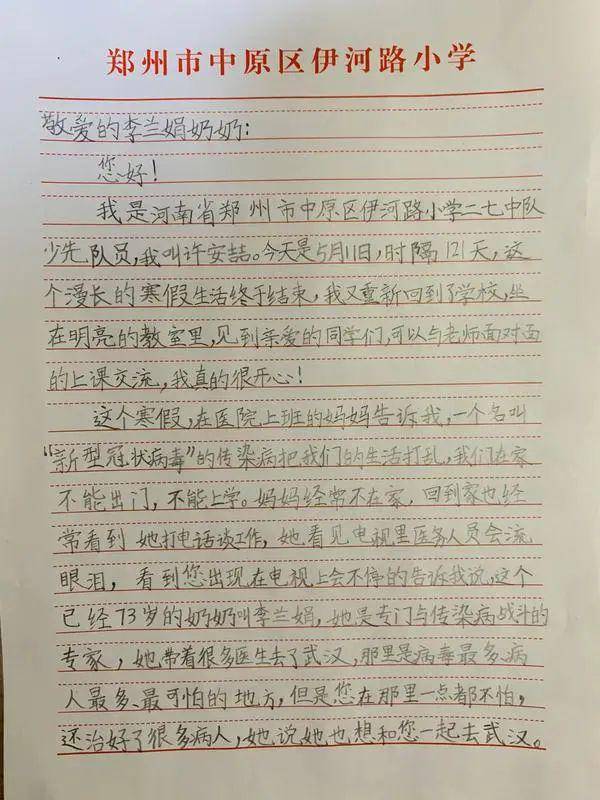 郑州市中原区伊河路小学
敬爱的李兰娟奶奶:
您好!
我是河南省郑州市中原区伊河路小学二七中队
少先队员,我叫许安喆。今天是5月11日,时隔121天,这
个漫长的寒假生活终于结束,我又重新回到了学校,坐
在明亮的教室里,见到亲爱的同学们,可以与老师面对面
的上课交流,我真的很开心!
这个寒假,在医院上班的妈妈告诉我,一个名叫
“新型冠状病毒”的传染病把我们的生活打乱,我们在家
不能出门,不能上学。妈妈经常不在家,回到家也经
常看到她打电话谈工作,她看见电视里医务人员会流
眼泪,看到您出现在电视上会不停的告诉我说,这个
已经73岁的奶奶叫李兰娟,她是专门与传染病战斗的
专家,她带着很多医生去了武汉,那里是病毒最多、病
人最多、最可怕的地方,但是您在那里一点都不怕,
还治好了很多病人,她说她也想和您一起去武汉。